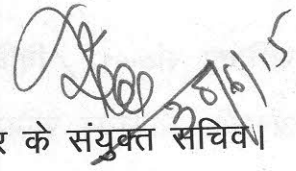 30/6/15
र के संयुक्त सचिव।